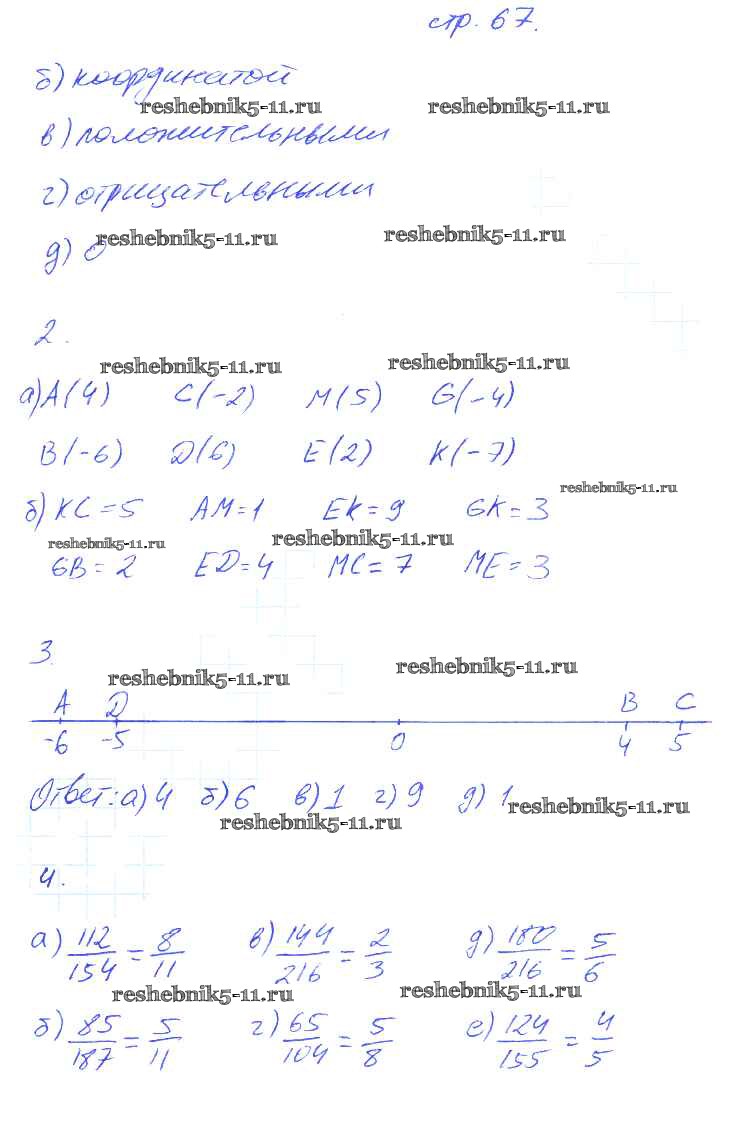 стр. 67.
б) координатой
reshebnik5-11.ru reshebnik5-11.ru
в) положительными
г) отрицательными
reshebnik5-11.ru reshebnik5-11.ru
д) 0
2.
reshebnik5-11.ru reshebnik5-11.ru
а) A(4) C(-2) M(5) G(-4)
B(-6) D(6) E(2) K(-7)
reshebnik5-11.ru
б) KC=5 AM=1 EK=9 GK=3
reshebnik5-11.ru reshebnik5-11.ru
GB=2 ED=4 MC=7 ME=3
3.
reshebnik5-11.ru reshebnik5-11.ru
A D B C
-6 -5 0 4 5
Ответ: а) 4 б) 6 в) 1 г) 9 д) 1
reshebnik5-11.ru reshebnik5-11.ru
4.
а) 112/154 = 8/11 в) 144/216 = 2/3 д) 180/216 = 5/6
reshebnik5-11.ru reshebnik5-11.ru
б) 85/187 = 5/11 г) 65/104 = 5/8 е) 124/155 = 4/5